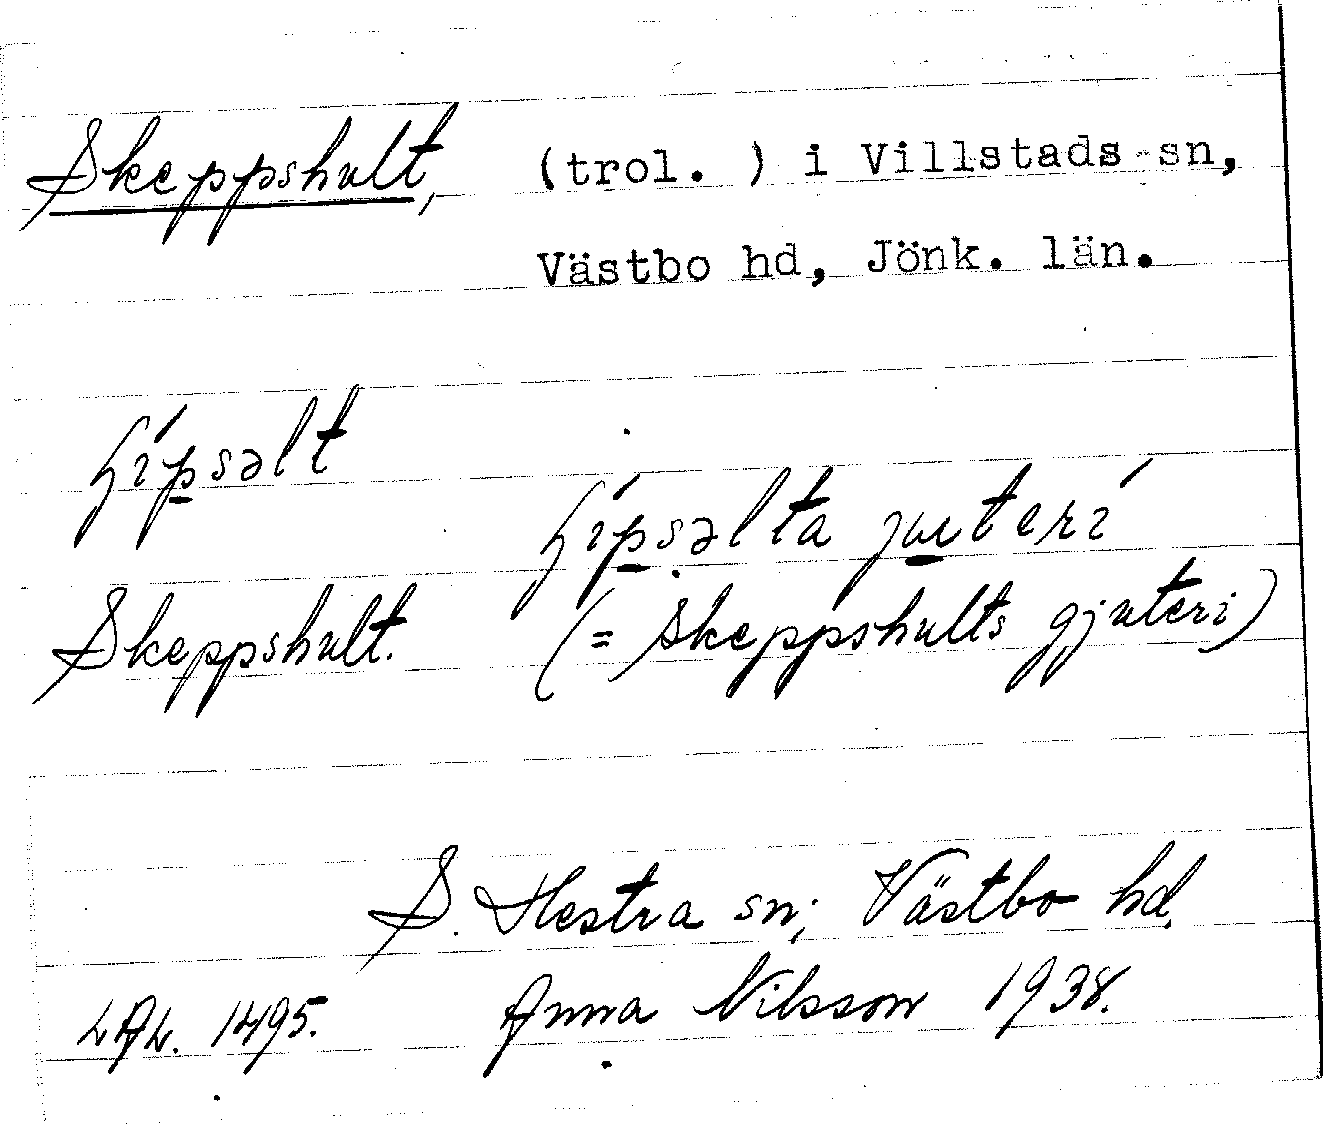 Skeppshult, (trol. ) i Villstads sn,
Västbo hd, Jönk. län.
Skeppshult. (= Skeppshults gjuteri)
S. Hestra sn; Västbo hd.
LAL. 1495. Anna Nilsson 1938.